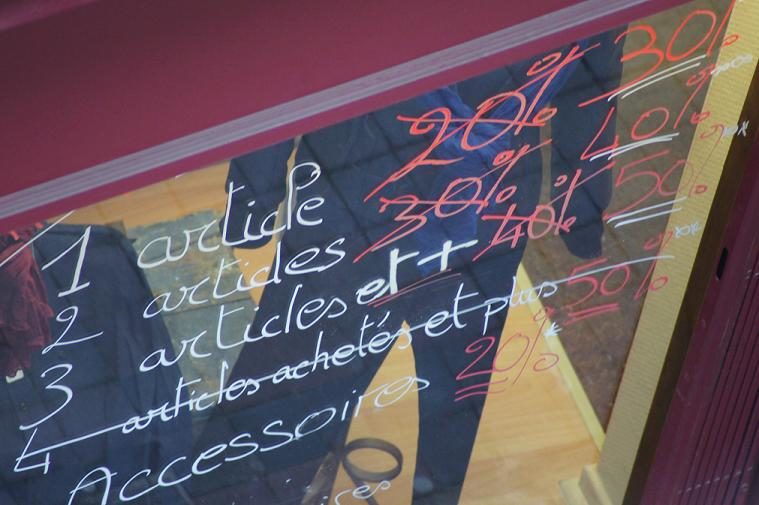 1 article 20% 30%
2 articles 30% 40%
3 articles et + 40% 50%
4 articles achetés et plus 50%
Accessoires 20%